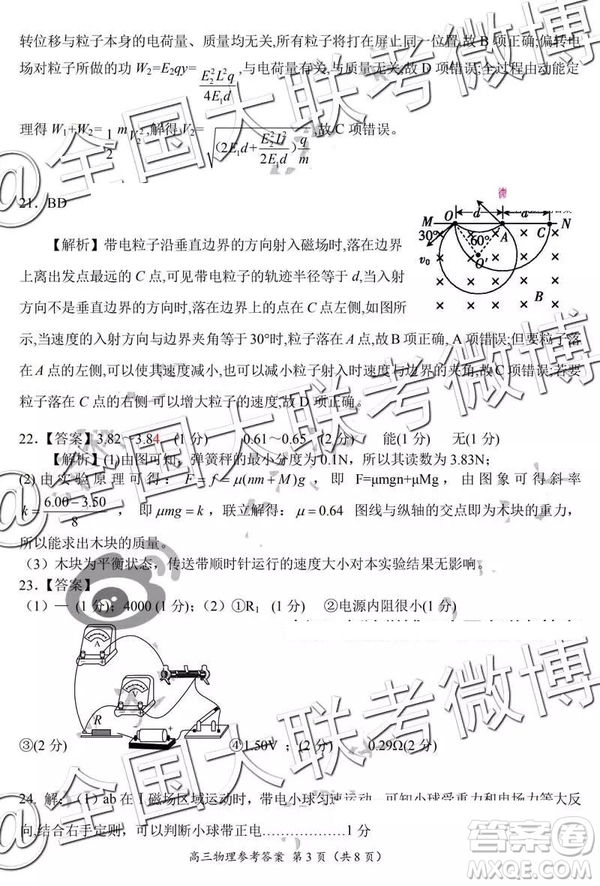 转位移与粒子本身的电荷量、质量均无关,所有粒子将打在屏上同一位置,故B项正确;偏转电
场对粒子所做的功 W₂=E₂qy= E₂²L²q/4E₁d ,与电荷量有关,与质量无关,故D项错误;全过程由动能定
理得 W₁+W₂= 1/2 mV₂² ,解得 V₂= √((2E₁d+E₂²L²/2E₁d)q/m) ,故C项错误。
21. BD
M O d A a C N
30° 60° v₀ O′ B
【解析】带电粒子沿垂直边界的方向射入磁场时,落在边界
上离出发点最远的 C 点,可见带电粒子的轨迹半径等于 d,当入射
方向不是垂直边界的方向时,落在边界上的点在 C 点左侧,如图所
示,当速度的入射方向与边界夹角等于30°时,粒子落在 A 点,故B项正确, A项错误;但要粒子落
在 A 点的左侧,可以使其速度减小,也可以减小粒子射入时速度与边界的夹角,故C项错误;若要
粒子落在 C 点的右侧 可以增大粒子的速度,故D项正确。
22.【答案】3.82~3.84 (1分) 0.61~0.65 (2分) 能(1分) 无(1分)
【解析】(1)由图可知，弹簧秤的最小分度为0.1N，所以其读数为3.83N；
(2)由实验原理可得：F=f=μ(nm+M)g，即 F=μmgn+μMg，由图象可得斜率
k=(6.00-3.50)/8 ，即μmg=k，联立解得：μ=0.64 图线与纵轴的交点即为木块的重力，
所以能求出木块的质量。
（3）木块为平衡状态，传送带顺时针运行的速度大小对本实验结果无影响。
23.【答案】
（1）— (1分)；4000 (1分)；（2）①R₁ (1分) ②电源内阻很小(1分)
A
R
③(2分) ④1.50V ；(2分) 0.29Ω(2分)
24. 解：(1) ab在Ⅰ磁场区域运动时，带电小球匀速运动，可知小球受重力和电场力等大反
向,结合右手定则，可以判断小球带正电………………1分
高三物理参考答案 第3页（共8页）
@全国大联考微博
@全国大联考微博
@全国大联考微博
答案圈